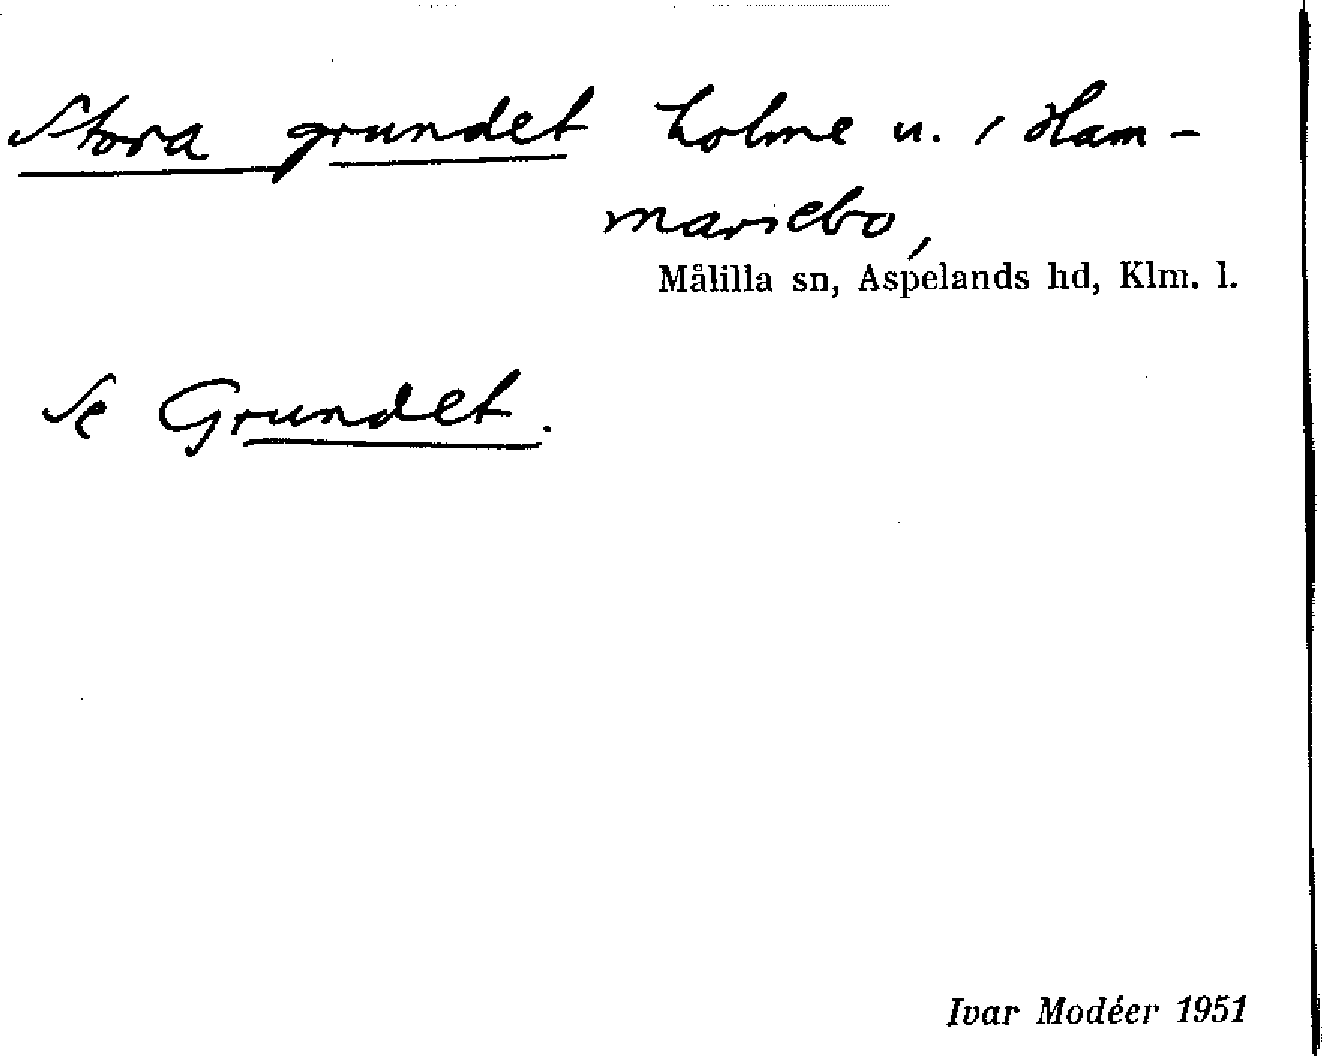 Stora grundet holme u. i Ham-
marsebo,
Målilla sn, Aspelands hd, Klm. l.
Se Grundet.
Ivar Modéer 1951